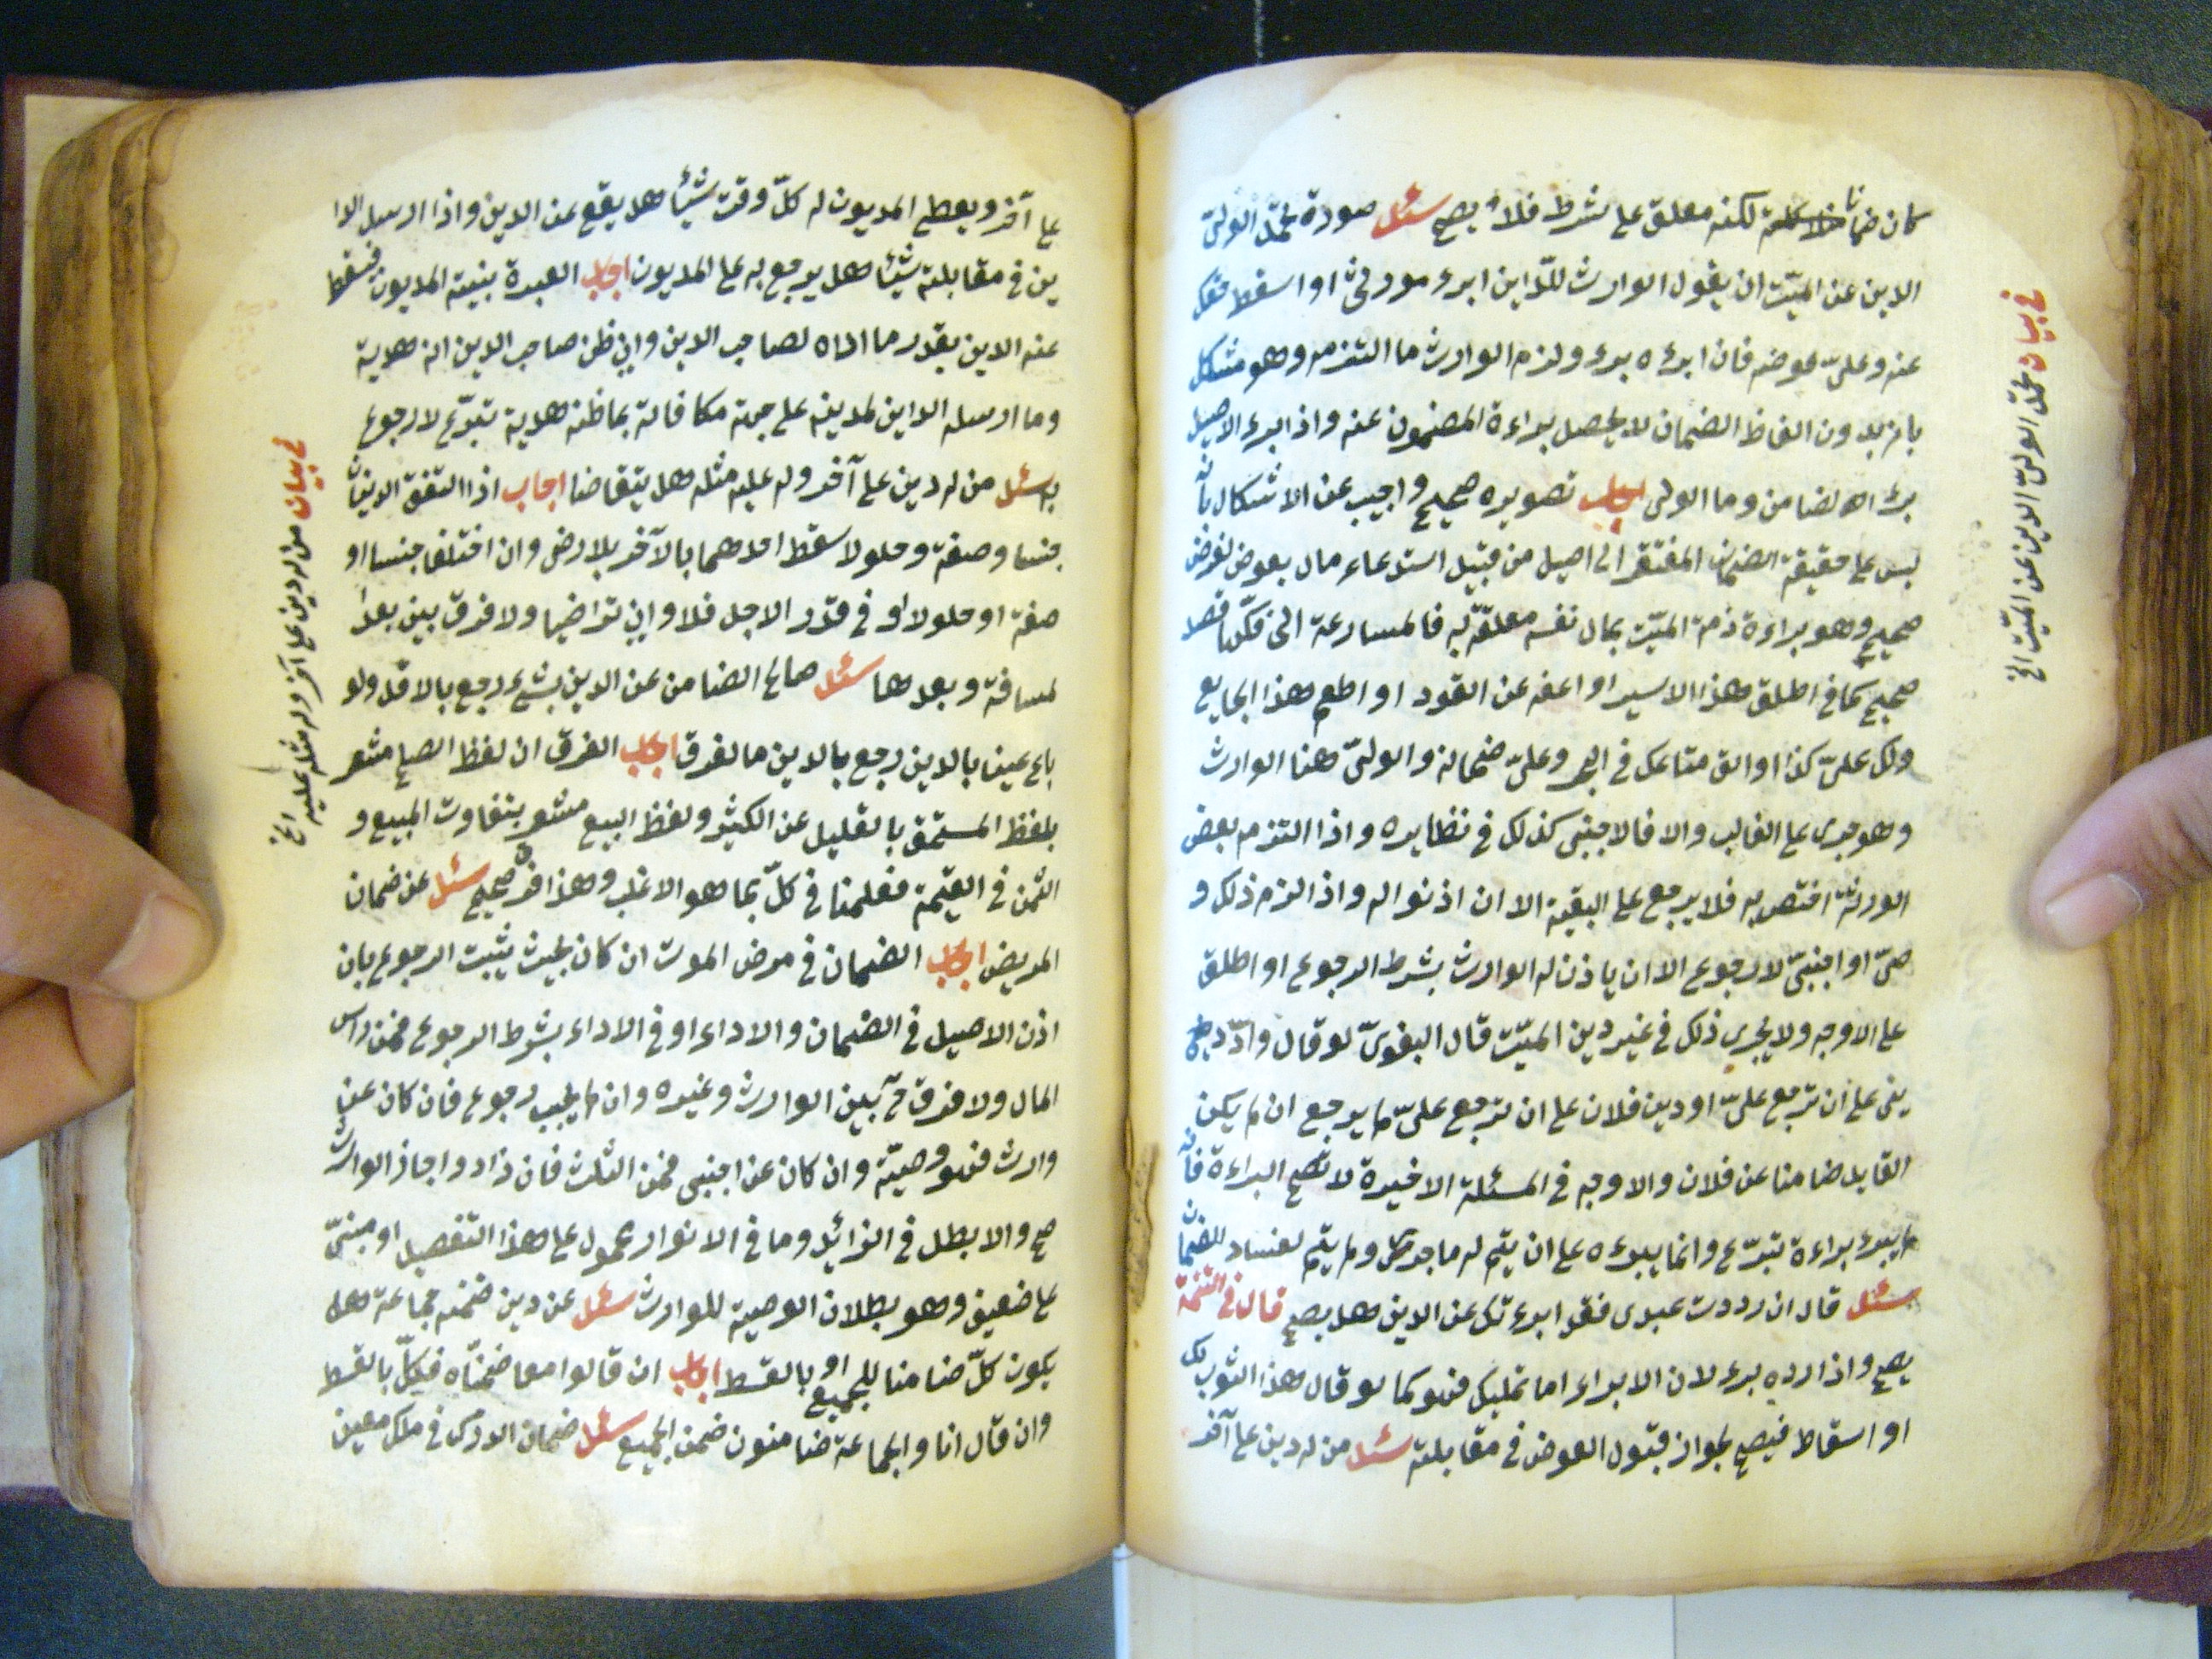 كان ضمانا لكنه معلق على شرط فلا يصح سئل صورة تحمّل الوليّ
الدين عن الميّت ان يقول الوارث للدّاين ابرء مورثى او اسقط حقك
عنه وعليّ عوضه فان ابرءه برء ولزم الوارث ما التزمه وهو مشكل
بانه بدون الفاظ الضمان لا يحصل براءة المضمون عنه واذا ابرء الاصيل
برء الضامن وما الولى اجاب تصويره صحيح واجيب عن الاشكال بأنه
ليس على حقيقة الضمان المفتقر الى اصيل من قبيل استدعاء مال بعوض لغرض
صحيح وهو براءة ذمة الميّت بمال نفسه معلقّه به فالمسارعة الى فكّها قصد
صحيح كما في اطلق هذا الاسير او اعف عن القود او اطعم هذا الجايع
ولك عليّ كذا او الق متاعك في البحر وعليّ ضمانه والوليّ هنا الوارث
وهو جرى على الغالب والا فالاجنبى كذلك في نظايره واذا التزم بعض
الورثة اختص به فلا يرجع على البقية الا ان اذنوا له واذا لزم ذلك و
صىّ او اجنبىّ لا رجوع الا ان ياذن له الوارث بشرط الرجوع او اطلق
على الاوجه ولا يجرى ذلك في غير دين الميّت قال البغوىّ لو قال وادّ
دينى على ان ترجع علىّ او دين فلان على ان ترجع علىّ لم يرجع ان لم يكن
القايل ضامنا عن فلان والاوجه في المسئلة الاخيرة لا تصح البراءة فانه
لم يبرء براءة تبرّع وانما يبرءه على ان يتم له ما جرى ولم يتم لفساد الضمان
سئل قال ان رددت عبدى فقد ابرءتك عن الدين هل يصح قال في التتمة
يصح واذا رده برء لان الابراء اما تمليك فهو كما لو قال هذا الثوب لك
او اسقاط فيصح لجواز قبول العوض في مقابلته سئل من له دين على آخر
في بيان تحمّل الولىّ الدين عن الميّت الخ
على آخر ويعطى المديون له كلّ وقت شيئا هل يقع عن الدين واذا ارسل الدا
ين في مقابلته شيئا هل يرجع به على المديون اجاب العبرة بنية المديون فسقط
عنه الدين بقدر ما اداه لصاحب الدين وان ظن صاحب الدين انه هدية
وما ارسله الداين لمدينه على جهة مكافاته بما ظنه هدية تبرّع لا رجوع
به سئل من له دين على آخر وله عليه مثله هل يتقاصا اجاب اذا اتفق الدينان
جنسا وصفة وحلولا سقط احدهما بالآخر بلا رضى وان اختلفا جنسا او
صفة او حلولا او في قدر الاجل فلا وان تراضيا ولا فرق بين بعد
المسافة وبعدها سئل صالح الضامن عن الدين بشىء رجع بالاقل ولو
باع عينا بالدين رجع بالدين ما الفرق اجاب الفرق ان لفظ الصلح مشعر
بلفظ المستحق بالقليل عن الكثير ولفظ البيع مشعر بتفاوت المبيع و
الثمن في القيمة فعلمنا في كلّ بما هو الاغلب وهذا فرق صحيح سئل عن ضمان
المريض اجاب الضمان في مرض الموت ان كان بحيث يثبت الرجوع بان
اذن الاصيل في الضمان والاداء او في الاداء بشرط الرجوع فمن راس
المال ولا فرق بين الوارث وغيره وان لم يجب رجوع فان كان عن
وارث فهو وصيّة وان كان عن اجنبى فمن الثلث فان زاد واجاز الوارث
صح والا بطل في الزائد وما في الانوار محمول على هذا التفصيل او مبنىّ
على ضعيف وهو بطلان الوصية للوارث سئل عن دين ضمنه جماعة هل
يكون كلّ ضامنا للجميع او بالقسط اجاب ان قالوا معا ضمنّاه فكلّ بالقسط
وان قال انا والجماعة ضامنون ضمن الجميع سئل ضمان الدرك في ملك معين
في بيان من له دين على آخر وله مثله عليه الخ